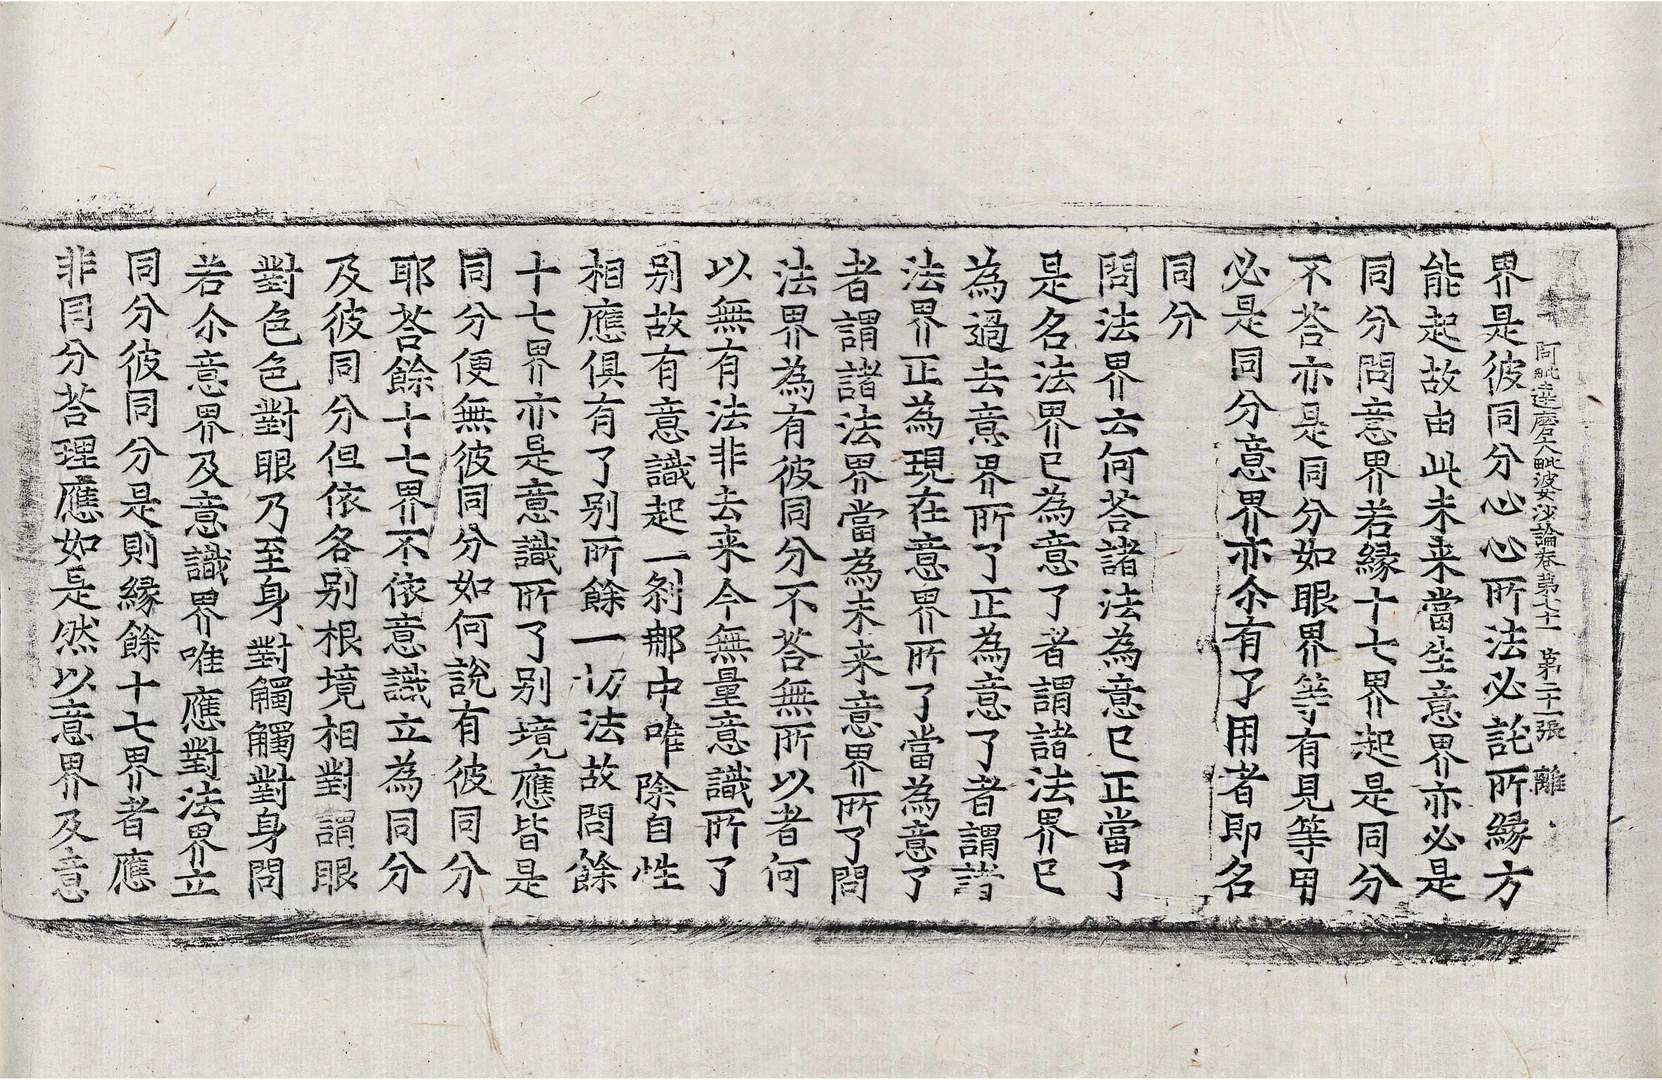 阿毗達磨大毗婆沙論卷第七十一 第二十一張 離
界是彼同分心心所法必託所緣方
能起故由此未来當生意界亦必是
同分問意界若緣十七界起是同分
不荅亦是同分如眼界等有見等用
必是同分意界亦尒有了用者即名
同分
問法界云何荅諸法為意已正當了
是名法界已為意了者謂諸法界已
為過去意界所了正為意了者謂諸
法界正為現在意界所了當為意了
者謂諸法界當為未来意界所了問
法界為有彼同分不荅無所以者何
以無有法非去来今無量意識所了
别故有意識起一剎那中唯除自性
相應俱有了别所餘一切法故問餘
十七界亦是意識所了别境應皆是
同分便無彼同分如何說有彼同分
耶荅餘十七界不依意識立為同分
及彼同分但依各别根境相對謂眼
對色色對眼乃至身對觸觸對身問
若尒意界及意識界唯應對法界立
同分彼同分是則緣餘十七界者應
非同分荅理應如是然以意界及意